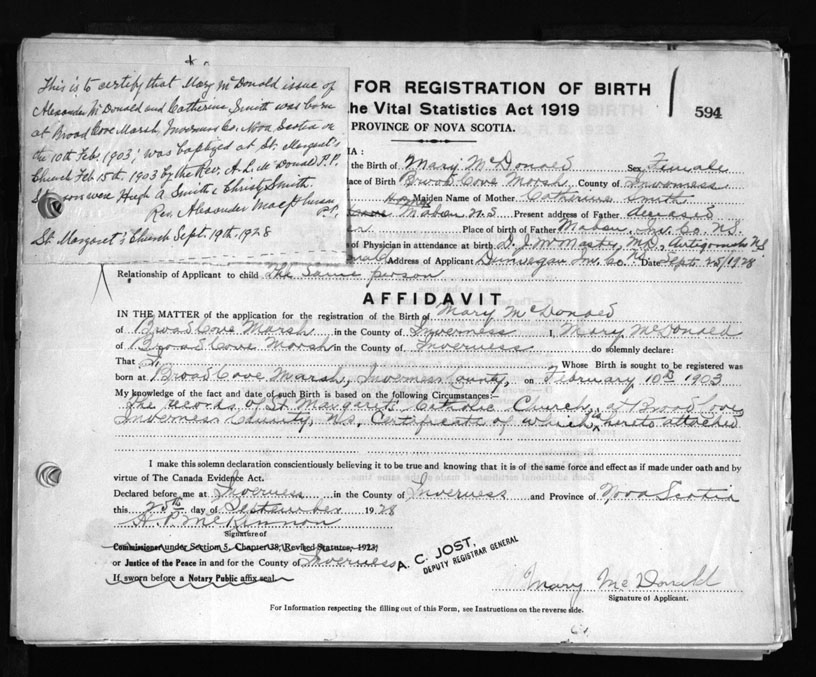 This is to certify that Mary McDonald issue of
Alexander McDonald and Catherine Smith was born
at Broad Cove Marsh, Inverness Co. Nova Scotia on
the 10th Feb. 1903; was baptized at St. Margaret's
Church Feb 15th 1903 by the Rev. A. L. McDonald P.P.
were Hugh A. Smith & Christy Smith
Rev. Alexander MacPherson
P.P.
St. Margaret's Church Sept. 19th 1928
FOR REGISTRATION OF BIRTH
he Vital Statistics Act 1919
594
PROVINCE OF NOVA SCOTIA.
IA :
the Birth of Mary McDonald Sex Female
lace of Birth Broad Cove Marsh County of Inverness
Maiden Name of Mother Catherine Smith
Mabou N.S Present address of Father deceased
Place of birth of Father Mabou Inv. Co. N.S.
of Physician in attendance at birth D. J. McMaster, M.D., Antigonish N.S
nald Address of Applicant Dunvegan Inv. Co. N.S. Date Sept. 25/1928
Relationship of Applicant to child The same person
AFFIDAVIT
IN THE MATTER of the application for the registration of the Birth of Mary McDonald
of Broad Cove Marsh in the County of Inverness I, Mary McDonald
of Broad Cove Marsh in the County of Inverness do solemnly declare:
That I Whose Birth is sought to be registered was
born at Broad Cove Marsh, Inverness County, on February 10th 1903
My knowledge of the fact and date of such Birth is based on the following Circumstances:—
The records of St. Margaret's Catholic Church, at Broad Cove,
Inverness County, N.S. Certificate of which is hereto attached
I make this solemn declaration conscientiously believing it to be true and knowing that it is of the same force and effect as if made under oath and by
virtue of The Canada Evidence Act.
Declared before me at Inverness in the County of Inverness and Province of Nova Scotia
this 25th day of September 1928
A. P. McKinnon
Signature of
Commissioner under Section 5, Chapter 38, (Revised Statutes, 1923)
or Justice of the Peace in and for the County of Inverness
If sworn before a Notary Public affix seal.
A. C. JOST,
DEPUTY REGISTRAR GENERAL
Mary McDonald
Signature of Applicant.
For Information respecting the filling out of this Form, see Instructions on the reverse side.